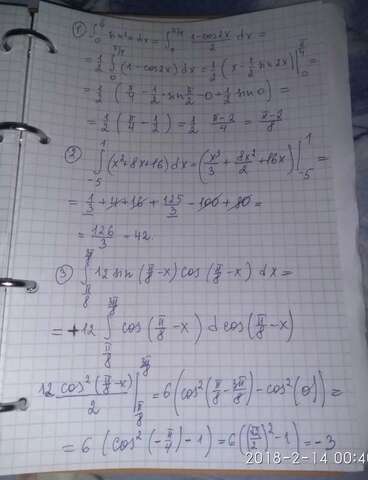 1) ∫₀^{π/4} sin²x dx = ∫₀^{π/4} (1-cos2x)/2 dx =
= 1/2 ∫₀^{π/4} (1-cos2x) dx = 1/2 (x - 1/2 sin2x) |₀^{π/4} =
= 1/2 (π/4 - 1/2 · sin π/2 - 0 + 1/2 sin0) =
= 1/2 (π/4 - 1/2) = 1/2 · (π-2)/4 = (π-2)/8
2) ∫₋₅¹ (x²+8x+16) dx = (x³/3 + 8x²/2 + 16x) |₋₅¹ =
= 1/3 + 4 + 16 + 125/3 - 100 + 80 =
= 126/3 = 42.
3) ∫_{π/8}^{3π/8} 12 sin(π/8 - x) cos(π/8 - x) dx =
= +12 ∫_{π/8}^{3π/8} cos(π/8 - x) d cos(π/8 - x)
12 cos²(π/8 - x)/2 |_{π/8}^{3π/8} = 6(cos²(π/8 - 3π/8) - cos²(0)) =
= 6 (cos²(-π/4) - 1) = 6((√2/2)² - 1) = -3
2018-2-14 00:40